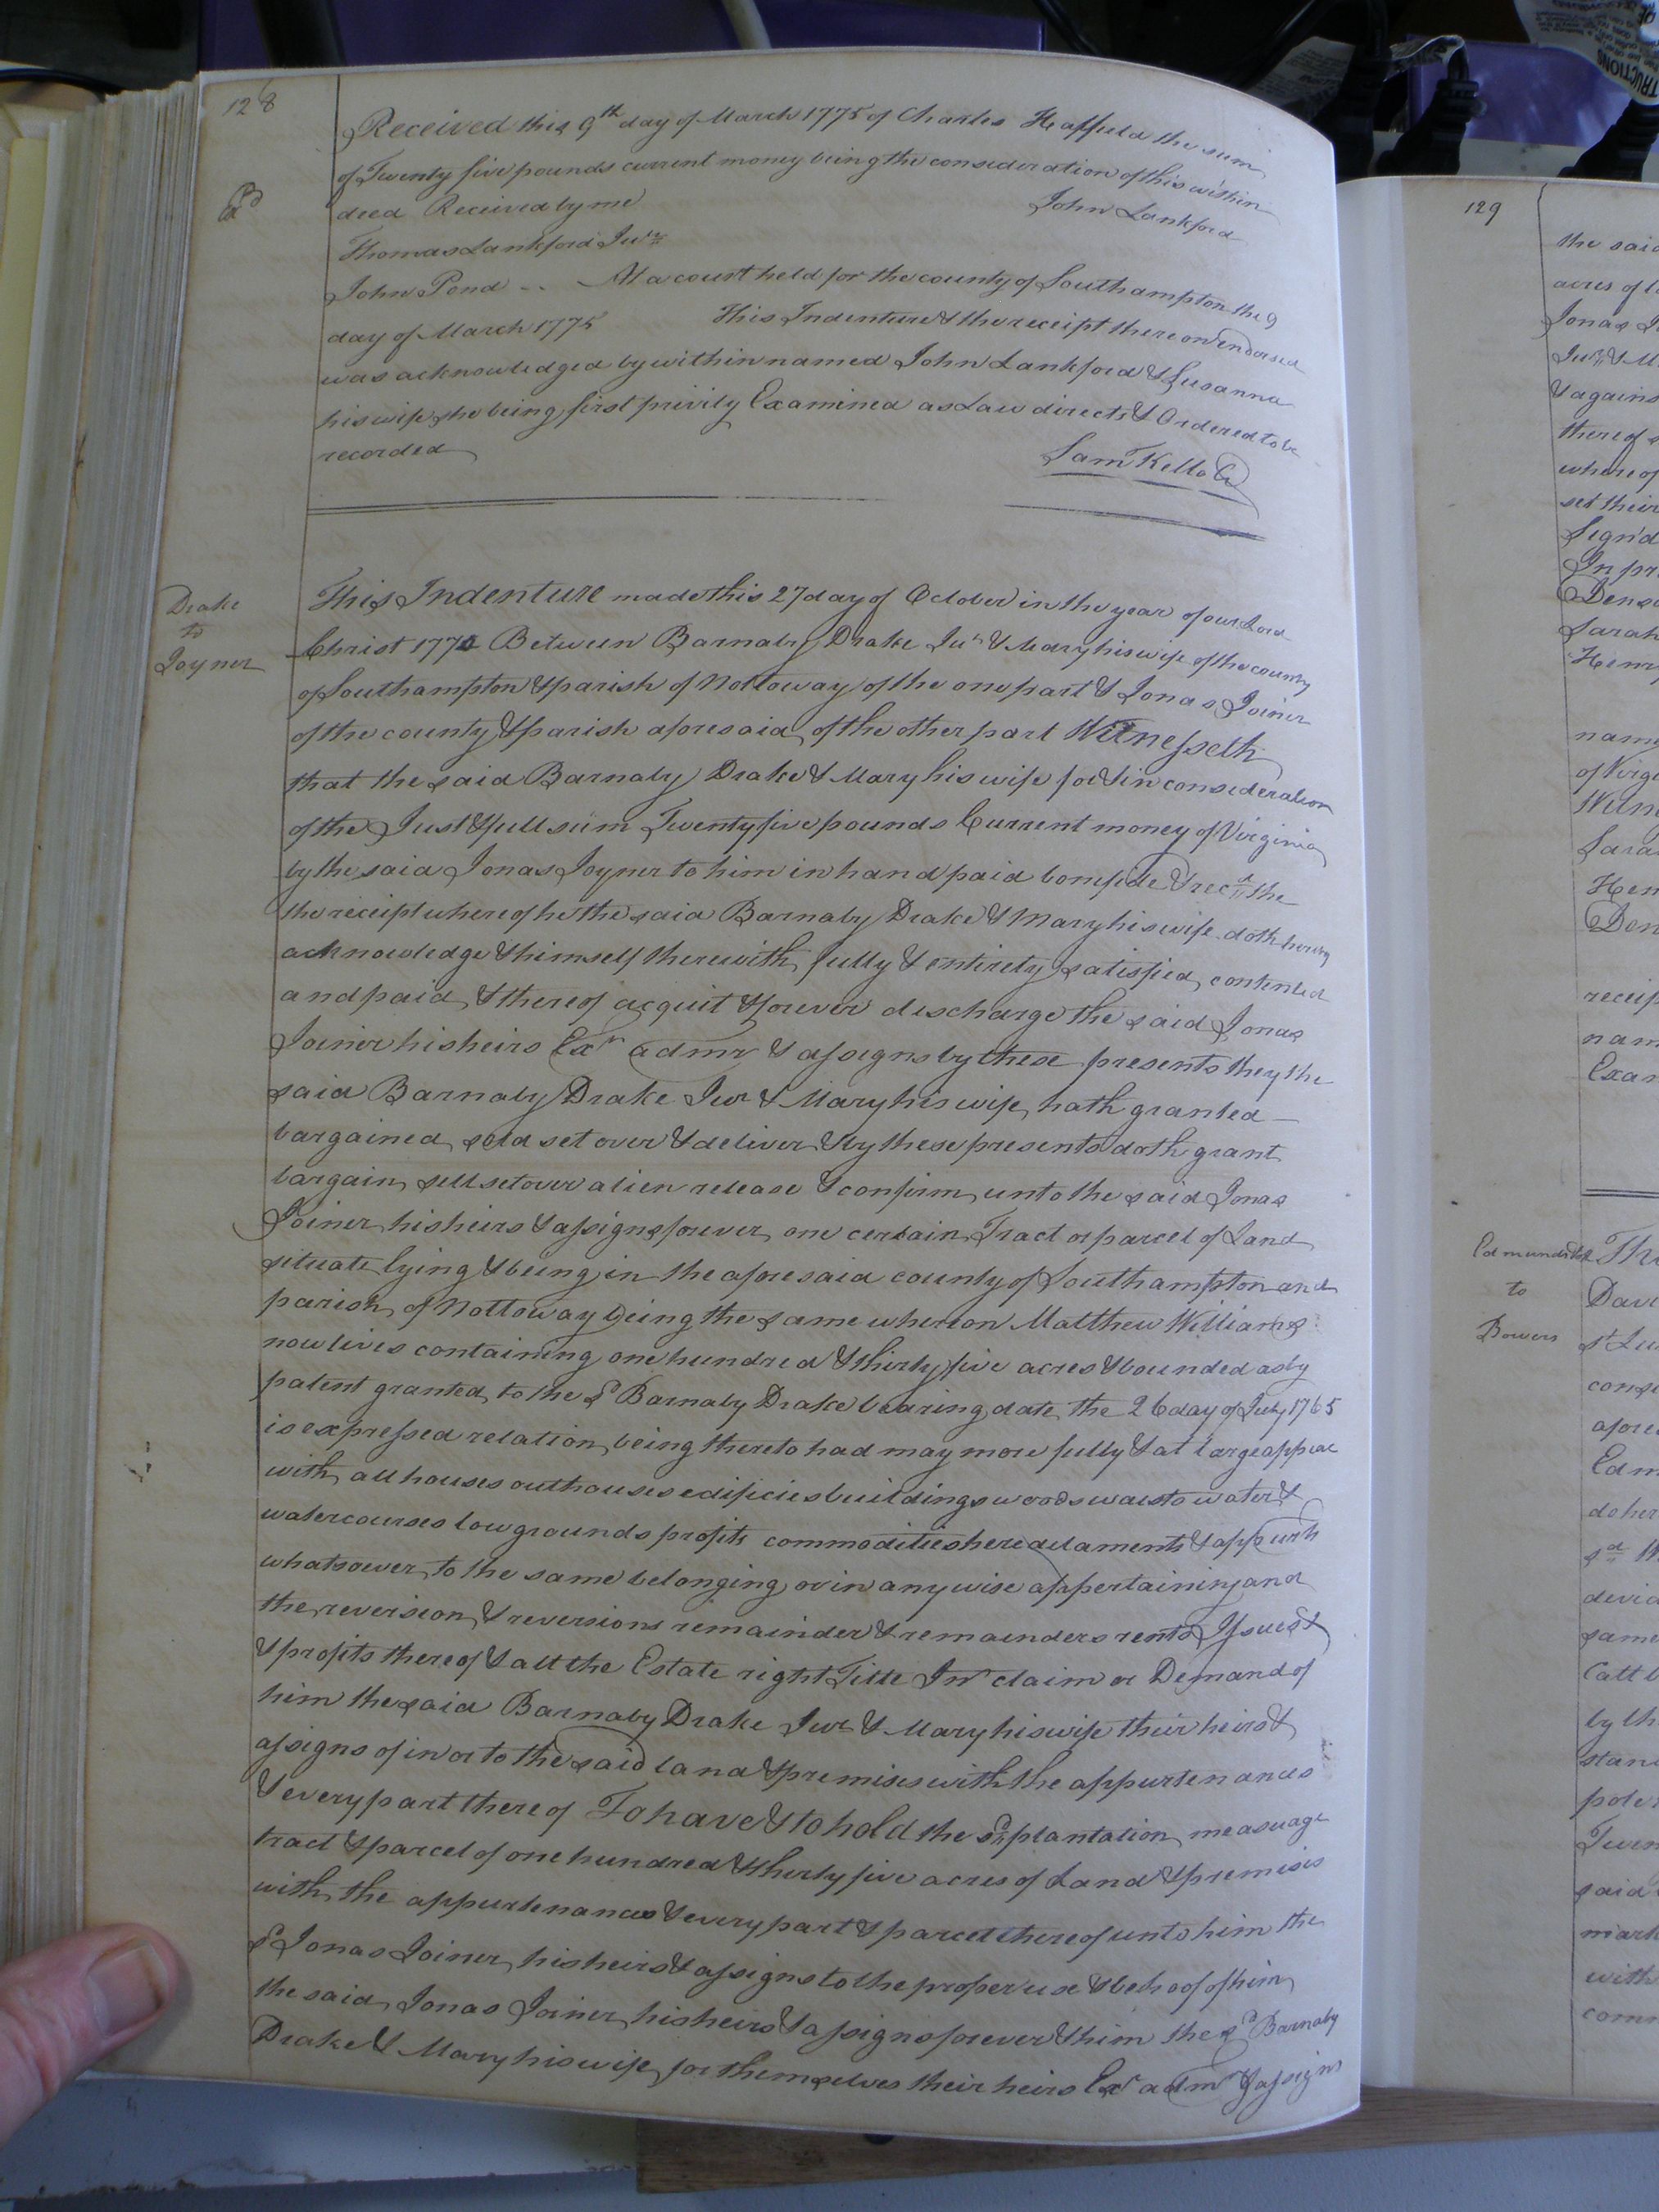 128
Received this 9th day of March 1775 of Charles Haffield the sum
of Twenty five pounds current money being the consideration of this within
Exd
deed Received by me
John Lankford
Thomas Lankford Junr
John Pond -- At a court held for the county of Southampton the 9
day of March 1775 This Indenture & the receipt thereon endorsed
was acknowledged by within named John Lankford & Susanna
his wife she being first privily Examined as Law directs & Ordered to be
recorded
Sam Kello C
Drake
to
Joyner
This Indenture made this 27 day of October in the year of our Lord
Christ 1774 Between Barnaby Drake Junr & Mary his wife of the county
of Southampton & parish of Nottoway of the one part & Jonas Joiner
of the county & parish aforesaid of the other part Witnesseth
that the said Barnaby Drake & Mary his wife for & in consideration
of the Just & full sum Twenty five pounds Current money of Virginia
by the said Jonas Joyner to him in hand paid bonifide & recd the
the receipt whereof he the said Barnaby Drake & Mary his wife doth hereby
acknowledge & himself therewith fully & entirely satisfied, contented
and paid & thereof acquit & forever discharge the said Jonas
Joiner his heirs Exr admr & assigns by these presents they the
said Barnaby Drake Junr & Mary his wife hath granted
bargained sold set over & deliver & by these presents doth grant
bargain sell set over alien release & confirm unto the said Jonas
Joiner his heirs & assigns forever one certain Tract or parcel of Land
situate lying & being in the aforesaid county of Southampton and
parish of Nottoway being the same whereon Matthew Williams
now lives containing one hundred & thirty five acres & bounded as by
patent granted to the sd Barnaby Drake bearing date the 26 day of July 1765
is expressed relation being thereto had may more fully & at large appear
with all houses outhouses edificies buildings woods waists water &
watercourses low grounds profits commodities heredaments & appurts
whatsoever to the same belonging or in any wise appertaining and
the reversion & reversions remainder & remainders rents Issues &
& profits thereof & all the Estate right Title Int claim or Demand of
him the said Barnaby Drake Junr & Mary his wife their heirs &
assigns of in or to the said land & premises with the appurtenances
& every part thereof To have & to hold the sd plantation measuage
tract & parcel of one hundred & thirty five acres of Land & premises
with the appurtenances & every part & parcel thereof unto him the
sd Jonas Joiner his heirs & assigns to the proper use & behoof of him
the said Jonas Joiner his heirs & assigns forever & him the sd Barnaby
Drake & Mary his wife for themselves their heirs Exr admr & assigns
129
the said
acres of
Jonas
Junr &
& agains
thereof
whereof
set their
Sign'd
In pr
Sarah
Henry
name
of Virgi
Sara
Hen
receip
nam
Exam
to
Bowers
Davi
cons
afore
Edm
do her
devid
same
by th
stand
pole
Twen
said
mark
with
comm